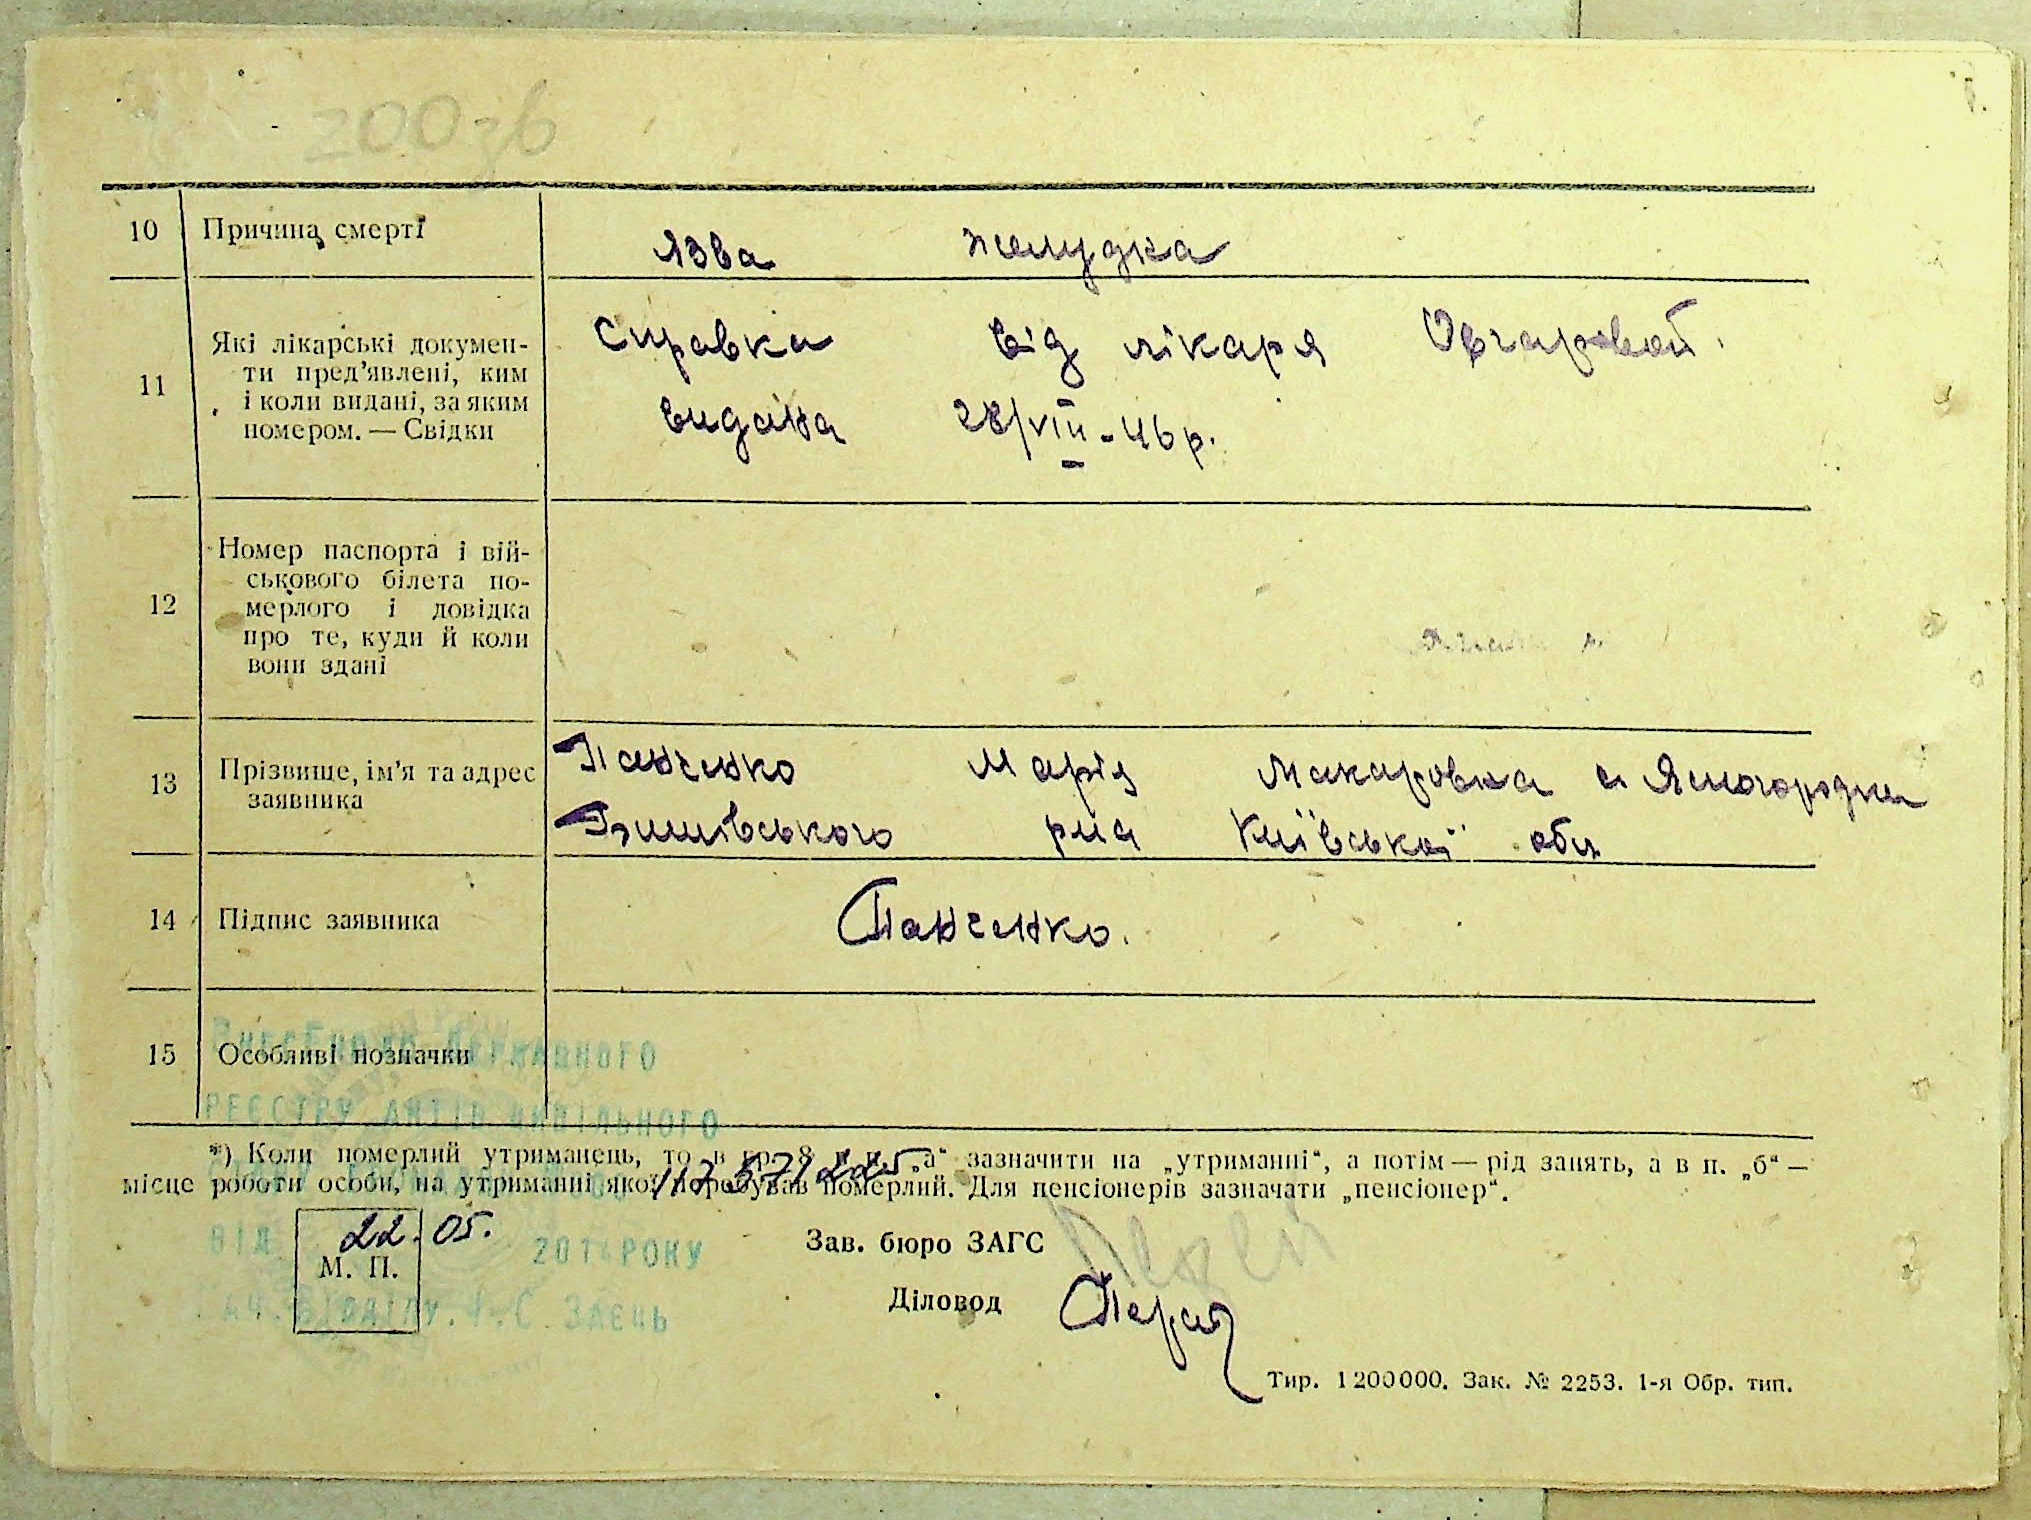 200зв
10 Причина смерті язва желудка
11 Які лікарські докумен-
ти пред'явлені, ким
і коли видані, за яким
номером. — Свідки
справка від лікаря Овчаровой.
видана 28/VIII-46р.
12 Номер паспорта і вій-
ськового білета по-
мерлого і довідка
про те, куди й коли
вони здані
13 Прізвище, ім'я та адрес
заявника
Панченко Марія Макаровка с Ясногородка
Київської обл
14 Підпис заявника Панченко.
15 Особливі позначки
ДЕРЖАВНОГО
РЕЄСТРУ АКТІВ ЦИВІЛЬНОГО
*) Коли померлий утриманець, то в гр. 8 в п. „а“ зазначити на „утриманні“, а потім — рід занять, а в п. „б“ —
місце роботи особи, на утриманні якої перебував померлий. Для пенсіонерів зазначати „пенсіонер“.
ВІД 22.05. 201 РОКУ
М. П.
НАЧ. ВІДДІЛУ І.С. ЗАЄЦЬ
Зав. бюро ЗАГС
Діловод
Тир. 1200000. Зак. № 2253. 1-я Обр. тип.